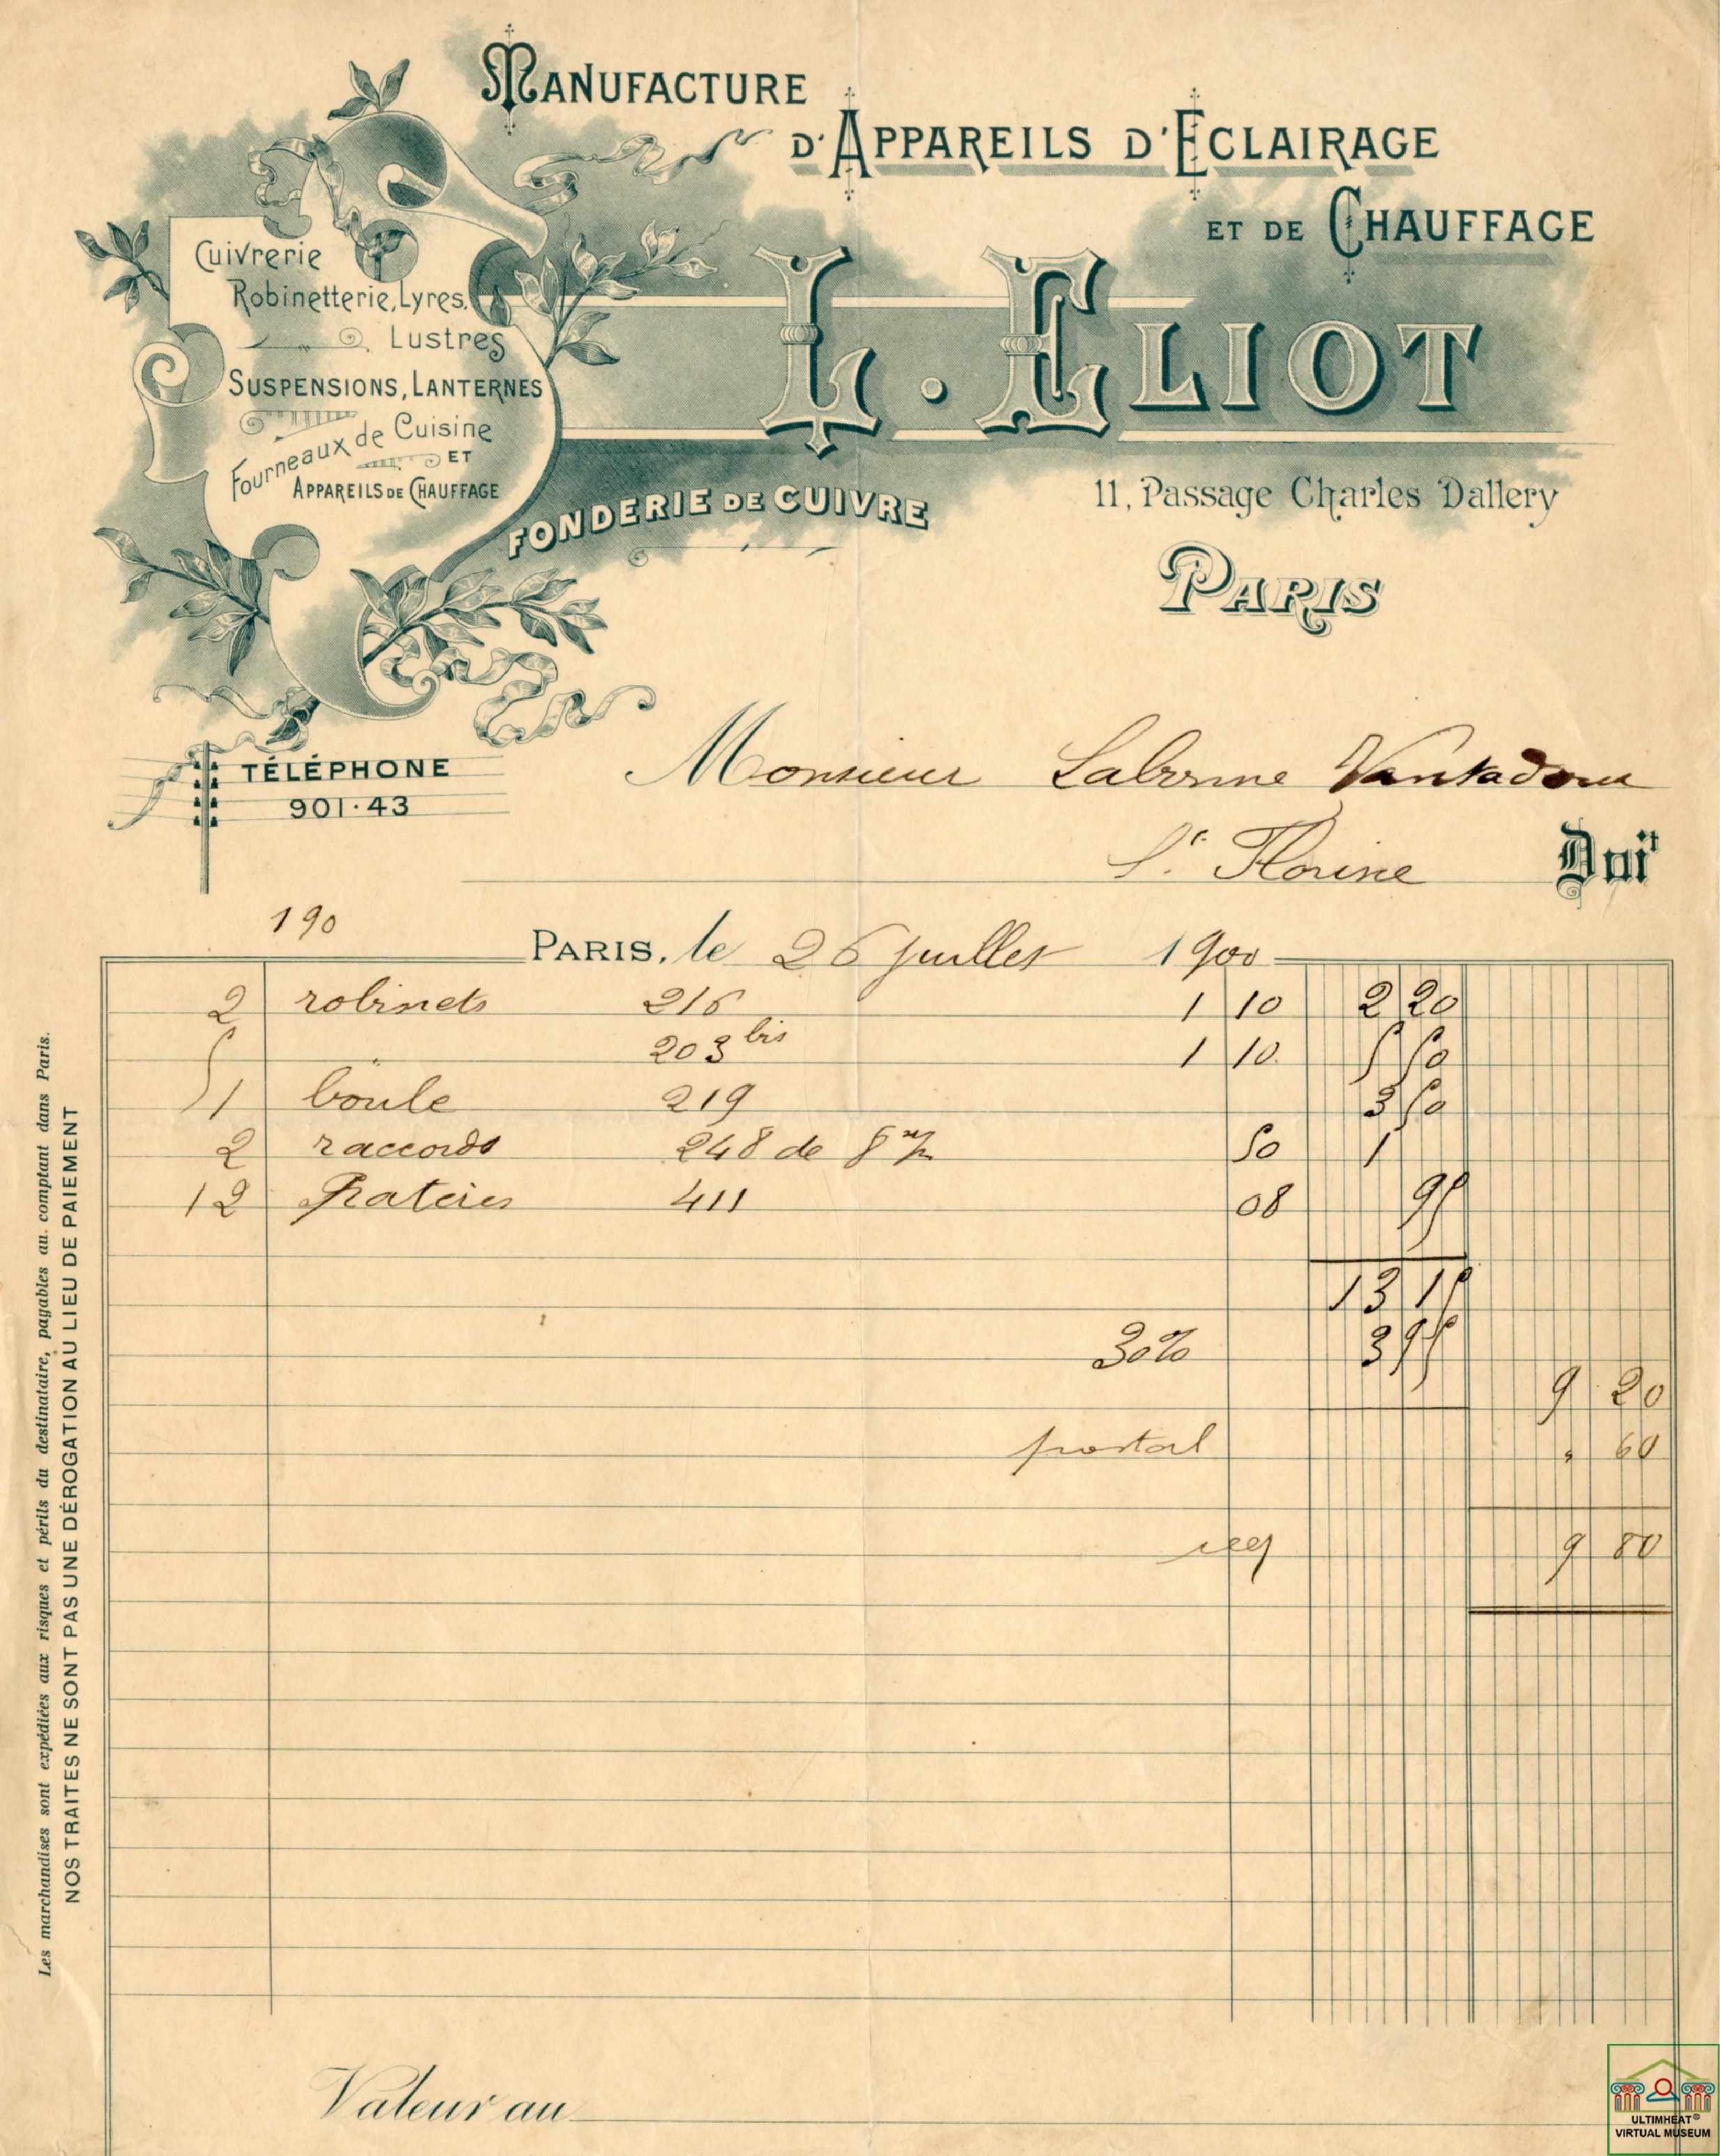 MANUFACTURE
D'APPAREILS D'ECLAIRAGE
ET DE CHAUFFAGE
L. ELIOT
Cuivrerie
Robinetterie, Lyres,
Lustres
SUSPENSIONS, LANTERNES
Fourneaux de Cuisine
ET
APPAREILS DE CHAUFFAGE
FONDERIE DE CUIVRE
11, Passage Charles Dallery
PARIS
TÉLÉPHONE
901·43
Monsieur
Ste Florine Doit
190
PARIS, le 26 juillet 1900
2 robinets 216 1 10 2 20
5 203 bis 1 10 5 50
1 boule 219 3 50
2 raccords 248 de 8 m/m 50 1
12 Pateres 411 08 95
13 15
30% 3 95
9 20
postal " 60
9 80
Valeur au
Les marchandises sont expédiées aux risques et périls du destinataire, payables au comptant dans Paris.
NOS TRAITES NE SONT PAS UNE DÉROGATION AU LIEU DE PAIEMENT
ULTIMHEAT®
VIRTUAL MUSEUM